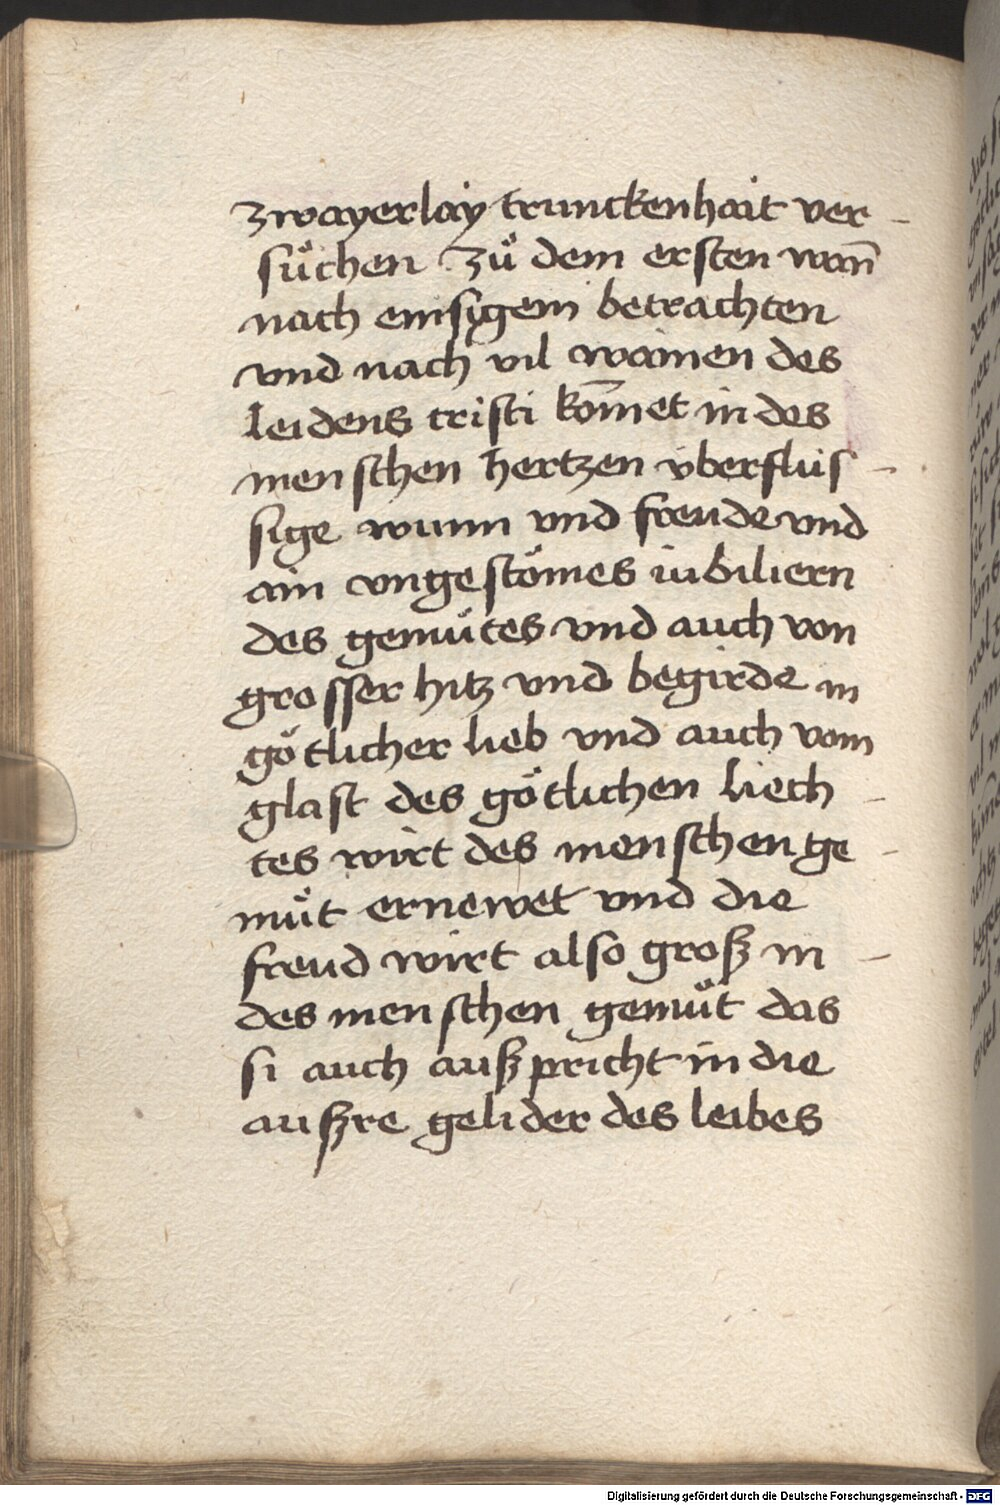 zwayerlay trunckenhait ver-
sůchen Zů dem ersten wan̄
nach emsigem betrachten
vnd nach vil wainen des
leidens cristi kom̄et in des
menschen hertzen v̈berflüs-
sige wunn vnd freude vnd
ain vngestömes iubiliern
des gemůtes vnd auch von
grosser hitz vnd begirde in
götlicher lieb vnd auch vom
glast des götlichen liech-
tes wirt des menschen ge-
můt ernewet vnd die
freud wirt also groß in-
des menschen gemůt das
si auch außpricht in die
außre gelider des leibes
Digitalisierung gefördert durch die Deutsche Forschungsgemeinschaft - DFG